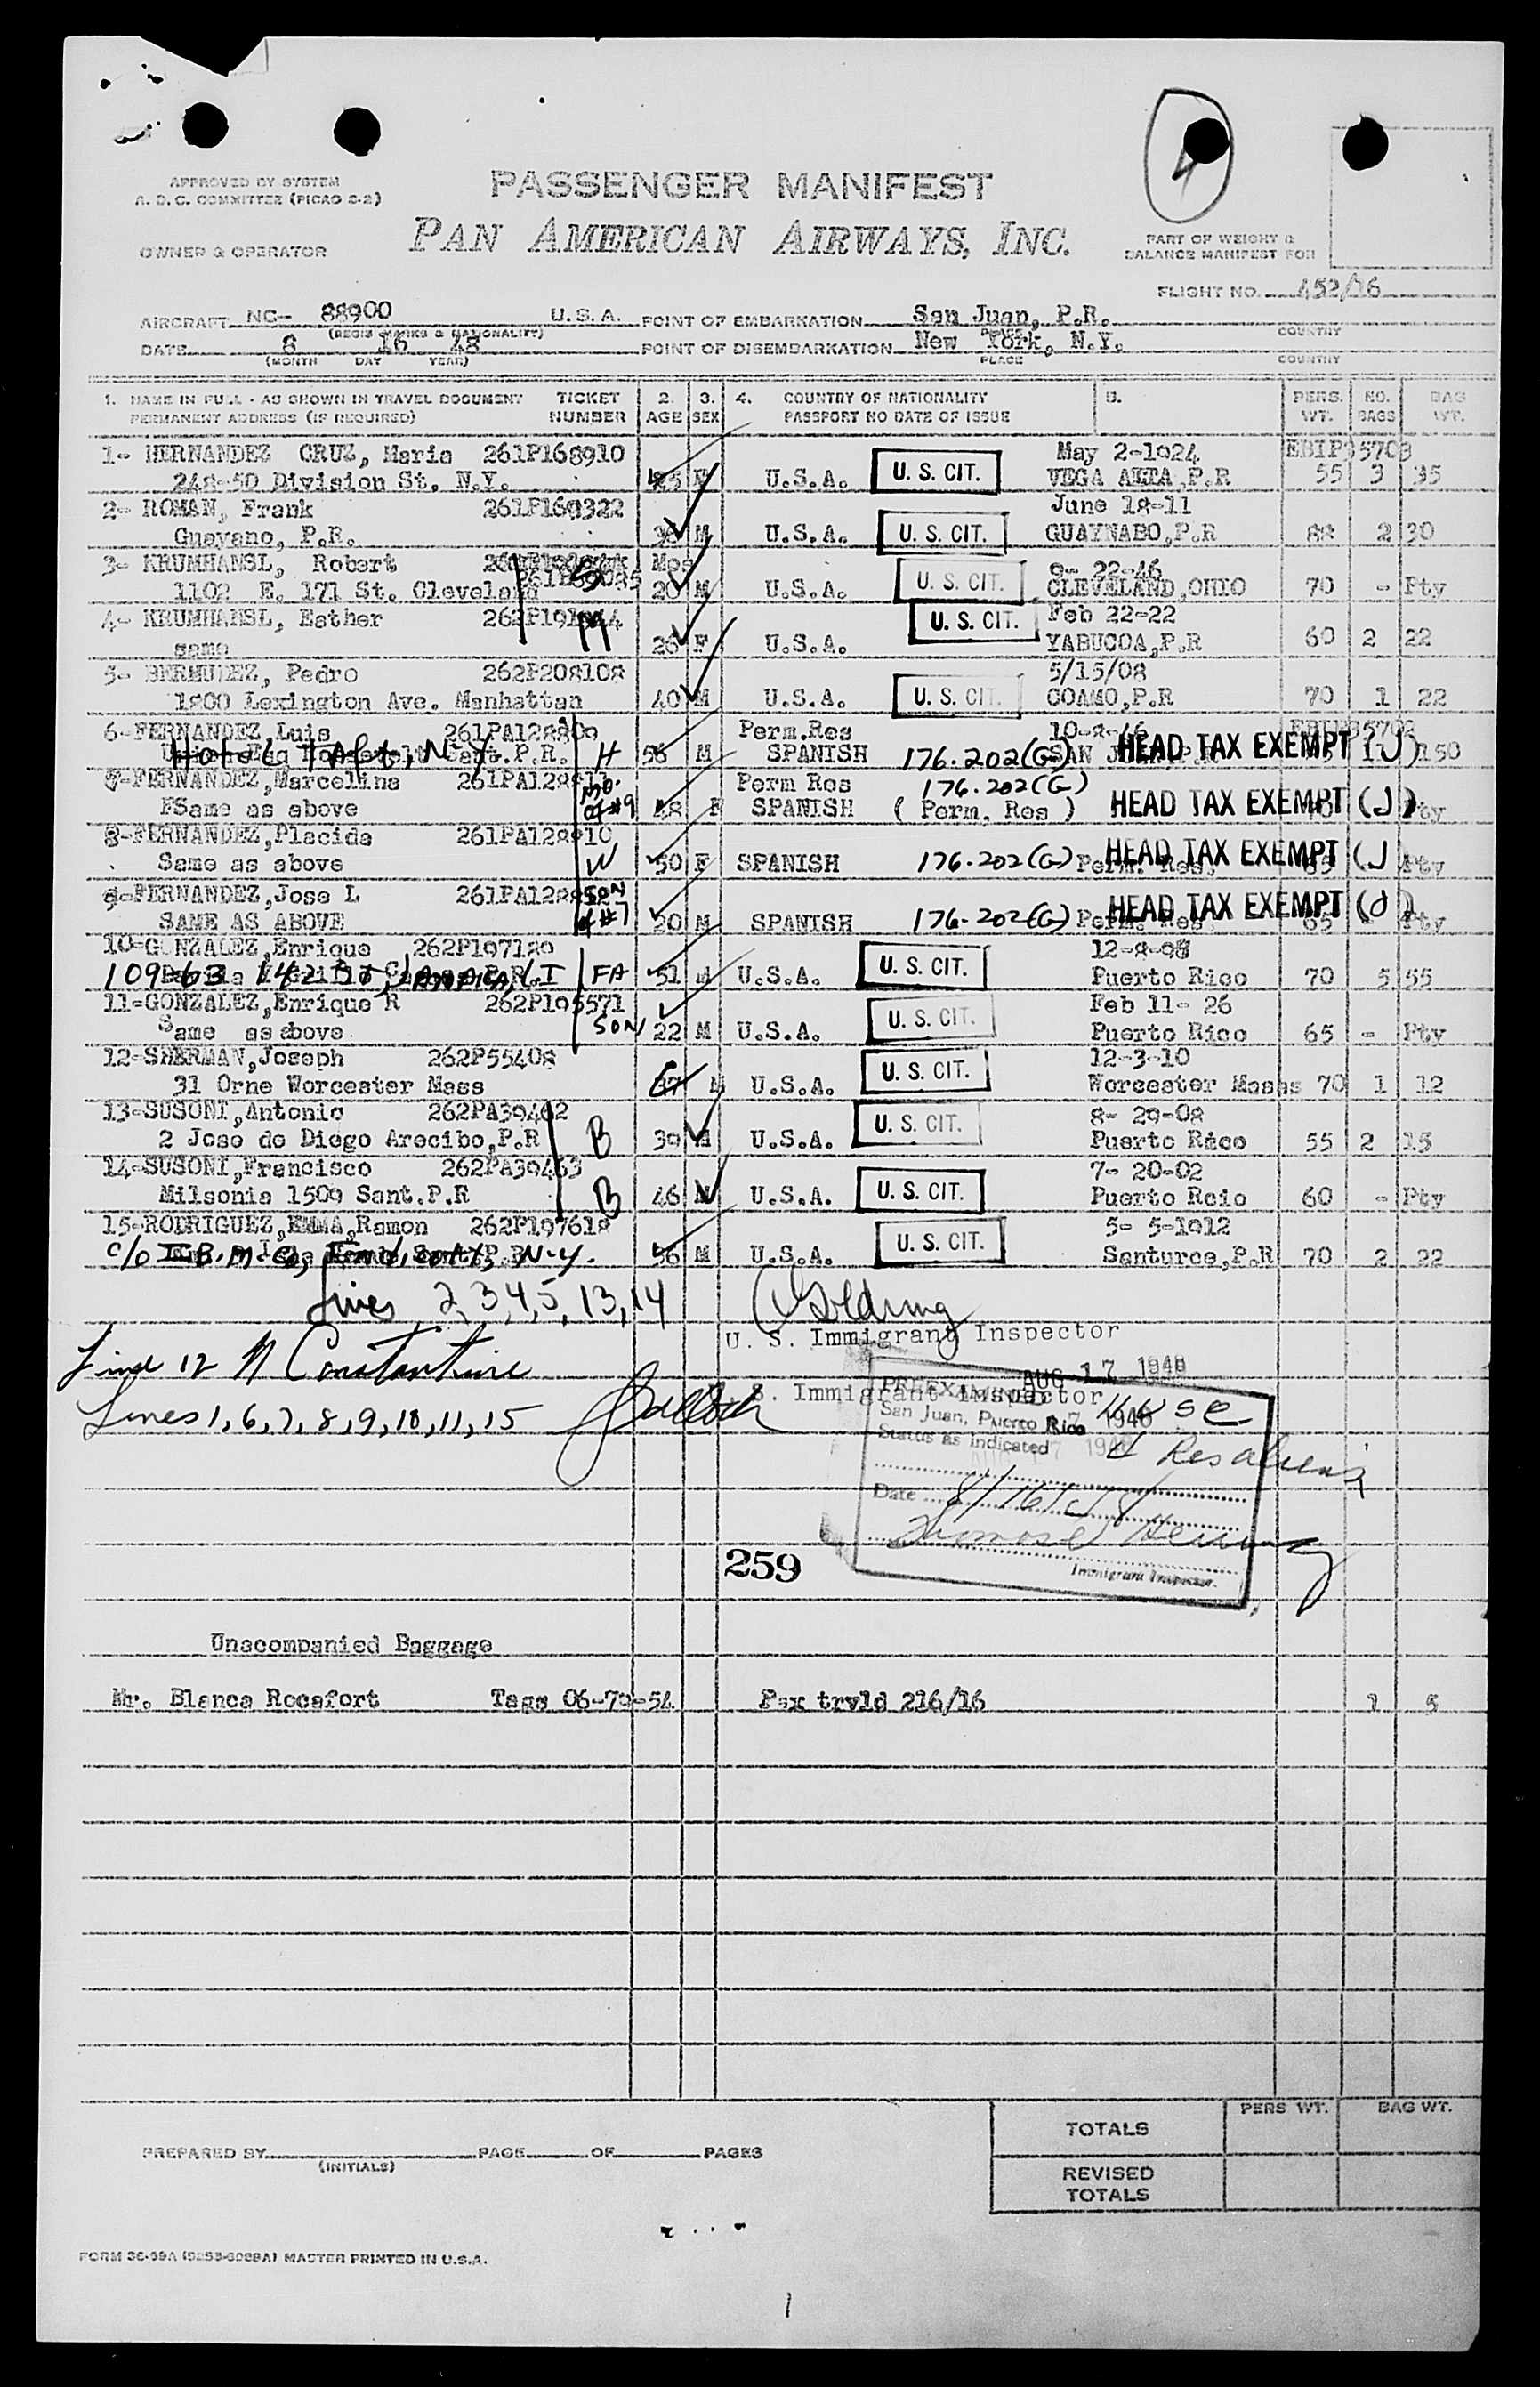 4
APPROVED BY SYSTEM
A. D. C. COMMITTEE (PICAO 2-2)
PASSENGER MANIFEST
OWNER & OPERATOR
PAN AMERICAN AIRWAYS, INC.
PART OF WEIGHT &
BALANCE MANIFEST FOR
FLIGHT NO. 452/16
AIRCRAFT NC- 88900 U.S.A. POINT OF EMBARKATION San Juan, P.R.
(REGIS MARKS & NATIONALITY) PLACE COUNTRY
DATE 8 16 48 POINT OF DISEMBARKATION New York, N.Y.
(MONTH DAY YEAR) PLACE COUNTRY
1. NAME IN FULL - AS SHOWN IN TRAVEL DOCUMENT TICKET 2. 3. 4. COUNTRY OF NATIONALITY 5. PERS. NO. BAG
PERMANENT ADDRESS (IF REQUIRED) NUMBER AGE SEX PASSPORT NO DATE OF ISSUE WT. BAGS WT.
1- HERNANDEZ CRUZ, Maria 261P168910 May 2-1924 EBIP35703
248-50 Division St. N.Y. F U.S.A. U. S. CIT. VEGA ALTA, P.R 55 3 35
2- ROMAN, Frank 261P169322 June 18-11
Guayano, P.R. M U.S.A. U. S. CIT. GUAYNABO, P.R 88 2 30
3- KRUMHANSL, Robert Mos 9- 22-46
1102 E. 171 St. Cleveland 20 M U.S.A. U. S. CIT. CLEVELAND, OHIO 70 - Pty
4- KRUMHANSL, Esther M Feb 22-22
same 26 F U.S.A. U. S. CIT. YABUCOA, P.R 60 2 22
5- BERMUDEZ, Pedro 262P208108 5/15/08
1800 Lexington Ave. Manhattan 40 M U.S.A. U. S. CIT. COAMO, P.R 70 1 22
6-FERNANDEZ, Luis Perm.Res
Hotel Taft, N.Y H M SPANISH 176.202(G) HEAD TAX EXEMPT (J) 150
7-FERNANDEZ, Marcelina Mo. Perm Res 176.202(G)
Same as above of #9 48 F SPANISH ( Perm. Res ) HEAD TAX EXEMPT (J) Pty
8-FERNANDEZ, Placida 261PA128810
Same as above W 50 F SPANISH 176.202(G) Perm. Res. HEAD TAX EXEMPT (J) Pty
9-FERNANDEZ, Jose L SON
SAME AS ABOVE of #7 20 M SPANISH 176.202(G) Perm. Res HEAD TAX EXEMPT (J) Pty
10-GONZALEZ, Enrique 262P197189 12-8-98
109-63 142 St, Jamaica, L.I FA 51 M U.S.A. U. S. CIT. Puerto Rico 70 5 55
11-GONZALEZ, Enrique R 262P195571 Feb 11- 26
Same as above SON 22 M U.S.A. U. S. CIT. Puerto Rico 65 - Pty
12-SHERMAN, Joseph 262P55408 12-3-10
31 Orne Worcester Mass 37 M U.S.A. U. S. CIT. Worcester Mass 70 1 12
13-SUSONI, Antonio 262PA39462 8- 29-08
2 Jose de Diego Arecibo, P.R B 39 M U.S.A. U. S. CIT. Puerto Rico 55 2 15
14-SUSONI, Francisco 262PA39463 7- 20-02
Milsonia 1509 Sant.P.R B 46 M U.S.A. U. S. CIT. Puerto Rcio 60 - Pty
15-RODRIGUEZ, EMMA, Ramon 262P197618 5- 5-1912
c/o I.B.M. Co, N.Y. 36 M U.S.A. U. S. CIT. Santurce, P.R 70 2 22
Lines 2, 3 4, 5, 13, 14 Golding
U. S. Immigrant Inspector
Line 12 N Constantine AUG 17 1948
U. S. Immigrant Inspector
Lines 1, 6, 7, 8, 9, 10, 11, 15
PREEXAMINED
San Juan, Puerto Rico
Status as indicated
Date 8/16/48
Immigrant Inspector.
259
Unacompanied Baggage
Mr. Blanca Rocafort Tags 06-70-54 Pax trvld 216/16 1 5
PERS WT. BAG WT.
TOTALS
PREPARED BY PAGE OF PAGES
(INITIALS)
REVISED
TOTALS
FORM 36-99A MASTER PRINTED IN U.S.A.
1